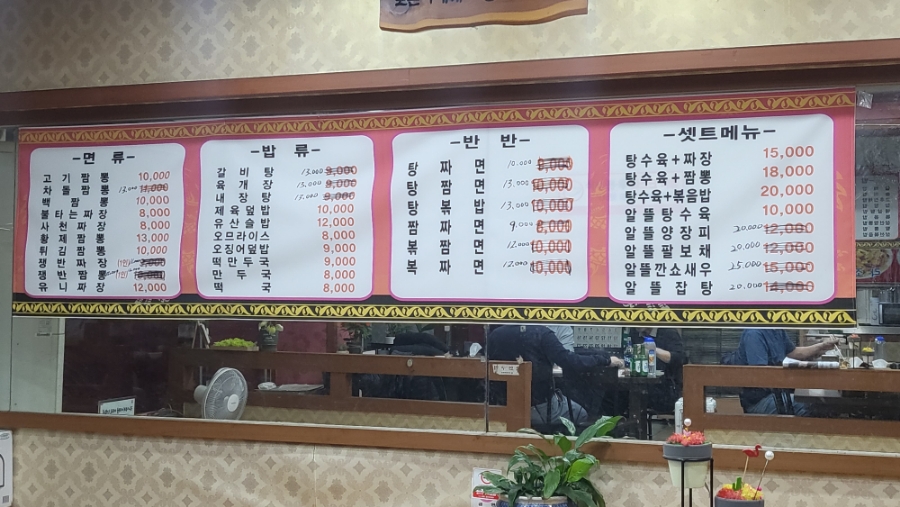 -면 류-
고기짬뽕 10,000
차돌짬뽕 13,000 11,000
백짬뽕 10,000
불타는짜장 8,000
사천짜장 8,000
황제짬뽕 13,000
튀김짬뽕 10,000
쟁반짜장
쟁반짬뽕
유니짜장 12,000
-밥 류-
갈비탕 13,000 9,000
육개장 13,000 9,000
내장탕 13,000 9,000
제육덮밥 10,000
유산슬밥 12,000
오므라이스 8,000
오징어덮밥 9,000
떡만두국 9,000
만두국 8,000
떡국 8,000
-반 반-
탕짜면 10,000 9,000
탕짬면 13,000 10,000
탕볶밥 13,000 10,000
볶짜면 9,000 8,000
볶짬면 12,000 10,000
복짜면 12,000 10,000
-셋트메뉴-
탕수육+짜장 15,000
탕수육+짬뽕 18,000
탕수육+볶음밥 20,000
알뜰탕수육 10,000
알뜰양장피 20,000 12,000
알뜰팔보채 20,000 12,000
알뜰깐쇼새우 25,000 15,000
알뜰잡탕 20,000 14,000